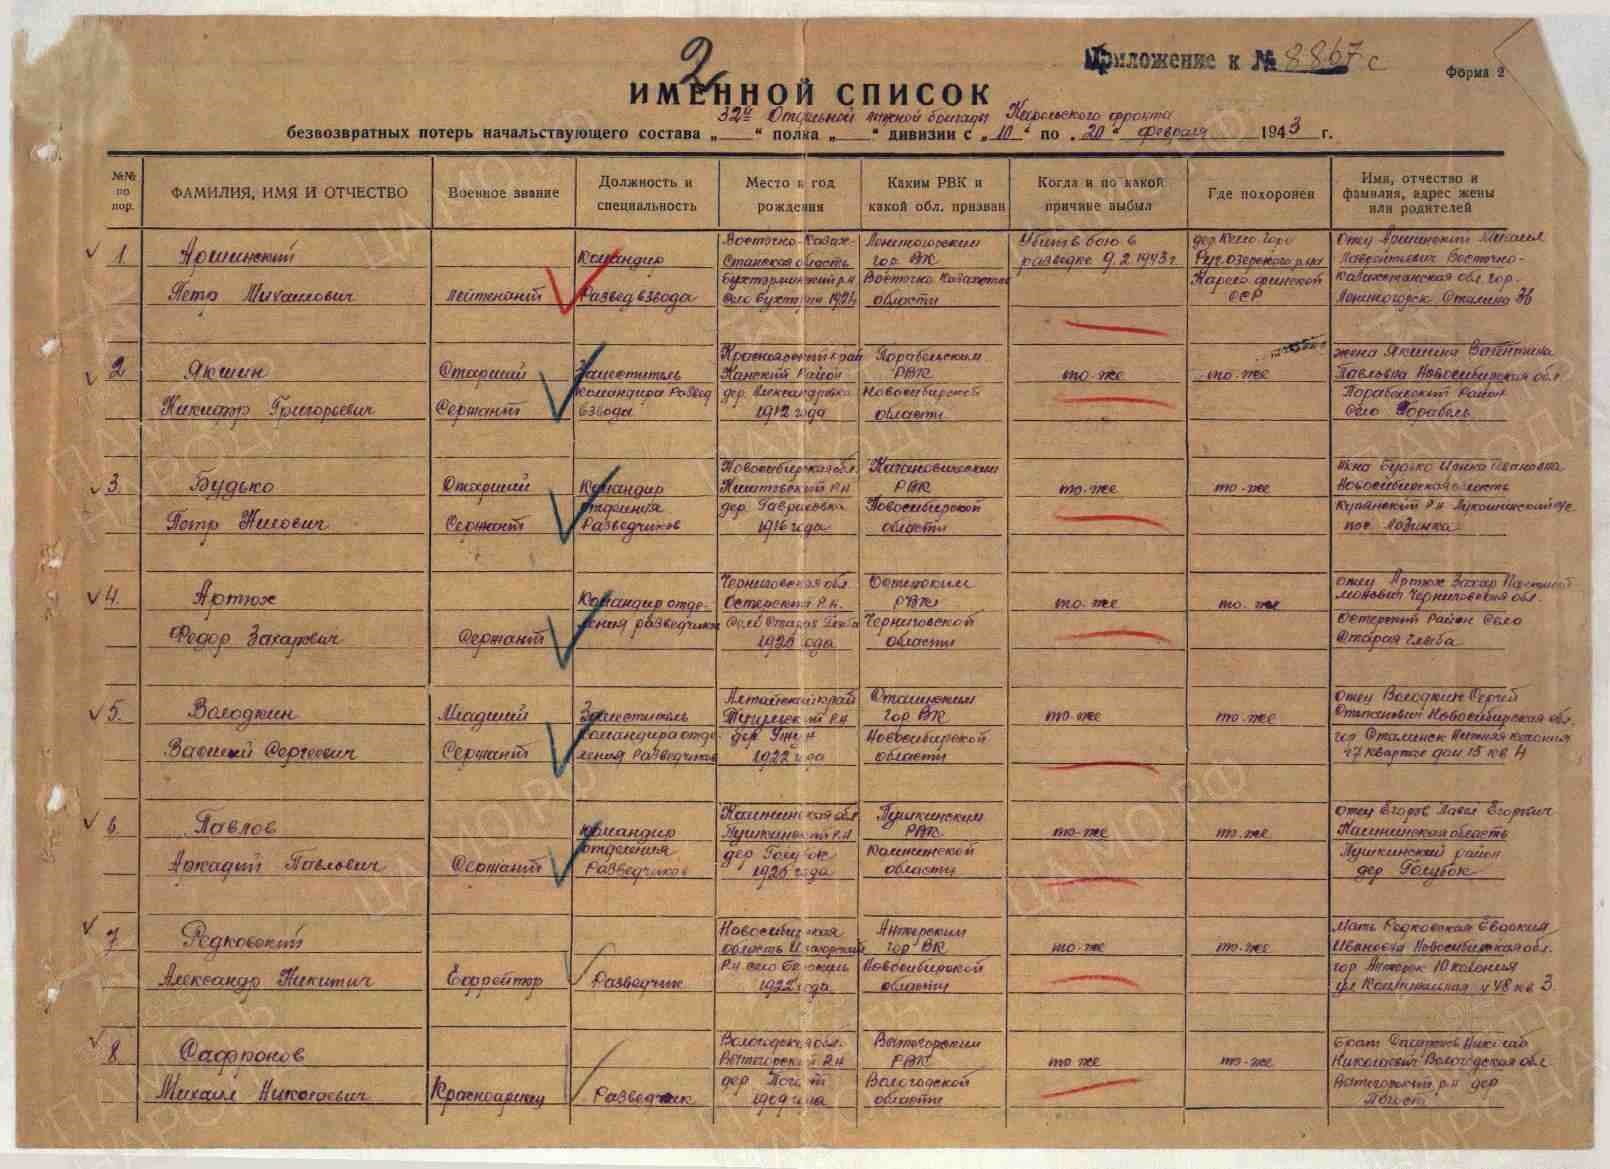 2
Приложение к № 8867с
Форма 2
ИМЕННОЙ СПИСОК
32й Отдельной лыжной бригады Карельского фронта
безвозвратных потерь начальствующего состава „ “ полка „ “ дивизии с „10“ по „20“ февраля 1943 г.
№№ по пор.
ФАМИЛИЯ, ИМЯ И ОТЧЕСТВО
Военное звание
Должность и специальность
Место и год рождения
Каким РВК и какой обл. призван
Когда и по какой причине выбыл
Где похоронен
Имя, отчество и фамилия, адрес жены или родителей
1
Аршинский
Петр Михайлович
Лейтенант
Командир
Развед взвода
Восточно-Казах-
станская область
Бухтарминский р-н
1924
Лениногорским
гор РВК
Восточно Казахстан
области
Убит в бою в
разведке 9.2.1943 г
дер Кемо-Гора
Ругозерского р-на
Карело-финской
ССР
отец Аршинский Михаил
Лаврентьевич Восточно-
Казахстанская обл. гор.
Лениногорск Сталина 36
2
Якшин
Никифор Григорьевич
Старший
Сержант
Заместитель
командира Развед
взвода
Красноярский край
Канский Район
дер. Александровка
1912 года
Парабельским
РВК
Новосибирской
области
то-же
то-же
жена Якшина Валентина
Павловна Новосибирская обл
Парабельский Район
село Парабель
3.
Будько
Петр Нилович
Старший
Сержант
Командир
отделения
Разведчиков
Новосибирская обл.
Кыштовский Р.Н
дер. Гавриловка
1916 года
Кагановическим
РВК
Новосибирской
области
то-же
то-же
жена Будько
Новосибирская область
Купинский Р.Н
пос. Лозинка
4.
Артюх
Федор Захарович
Сержант
Командир отде-
ления разведчиков
Черниговская обл.
Остерский Р.Н.
Село Старая Глыба
1925 года
Остерским
РВК
Черниговской
области
то-же
то-же
отец Артюх Захар
Черниговская обл.
Остерский Район Село
Старая Глыба
5.
Володкин
Василий Сергеевич
Младший
Сержант
Заместитель
командира отде-
ления Разведчиков
Алтайский край
Р.Н
дер
1922 года
Сталинским
гор РВК
Новосибирской
области
то-же
то-же
отец Володкин Сергей
Степанович Новосибирская обл.
гор Сталинск Нижняя колония
17 квартал дом 15 кв 4
6
Павлов
Аркадий Павлович
Сержант
Командир
отделения
Разведчиков
Калининская обл
Пушкинский Р.Н
дер Голубок
1925 года
Пушкинским
РВК
Калининской
области
то-же
то-же
отец Егоров Павел Егорович
Калининская область
Пушкинский район
дер Голубок
7
Редковский
Александр Никитич
Ефрейтор
Разведчик
Новосибирская
область
Р.Н село
1922 года
Анжерским
гор РВК
Новосибирской
области
то-же
то-же
Мать Редковская Евдокия
Ивановна Новосибирская обл.
гор Анжерск 10 колония
ул Коммунальная 48 кв 3.
8
Сафронов
Михаил Николаевич
Красноармеец
Разведчик
Вологодская обл.
Вытегорский Р.Н
дер Погост
1909 года
Вытегорским
РВК
Вологодской
области
то-же
то-же
брат Сафронов Николай
Николаевич Вологодская обл
Вытегорский р.н дер
Погост